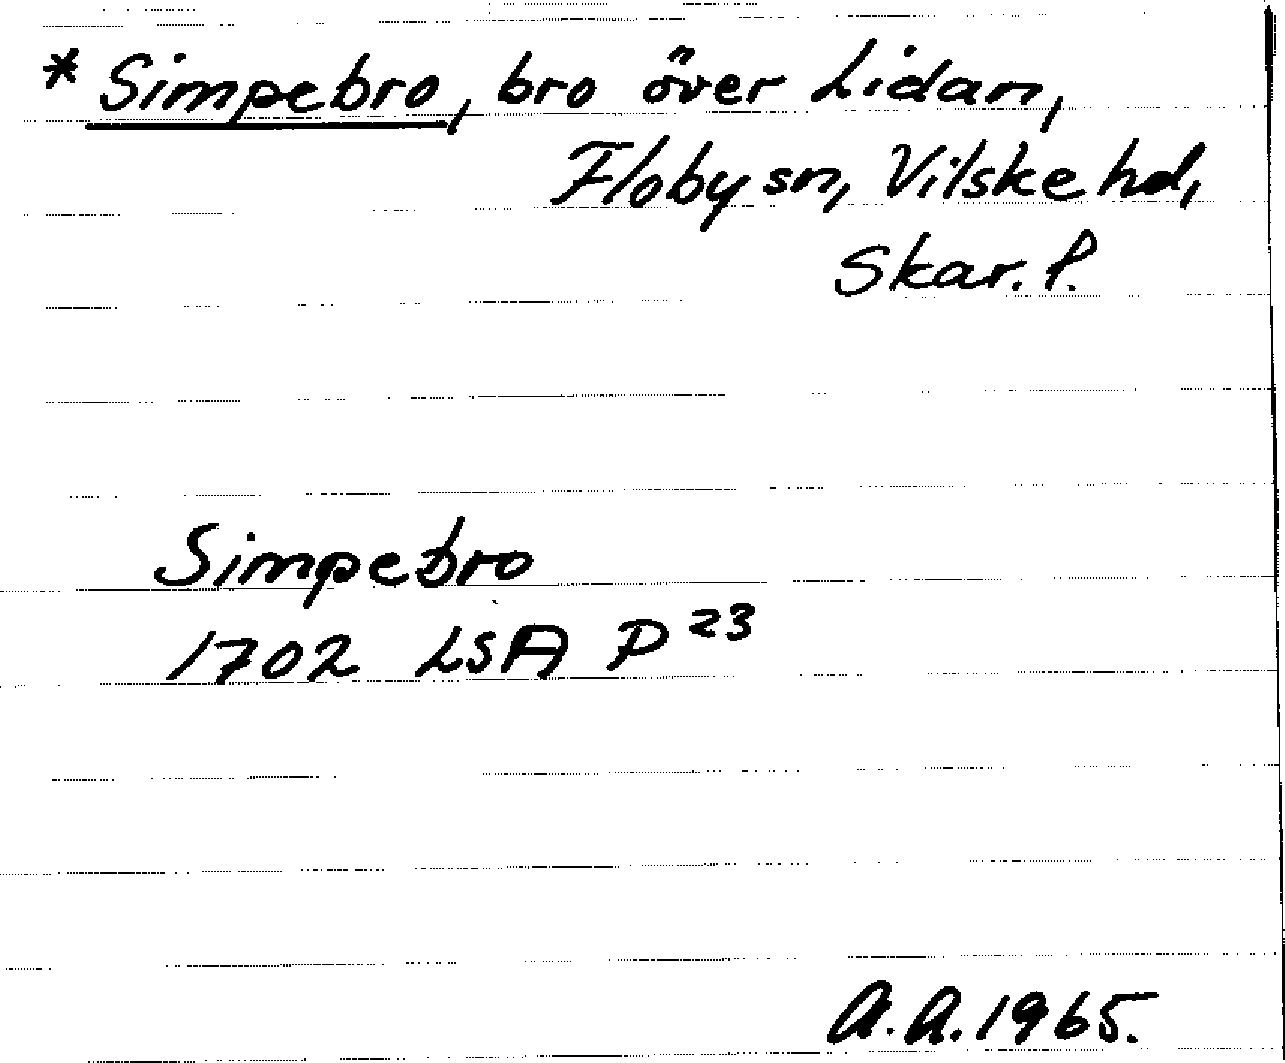 * Simpebro, bro över Lidan,
Floby sn, Vilske hd,
Skar. l.
Simpebro
1702 LSA P 23
A.A. 1965.